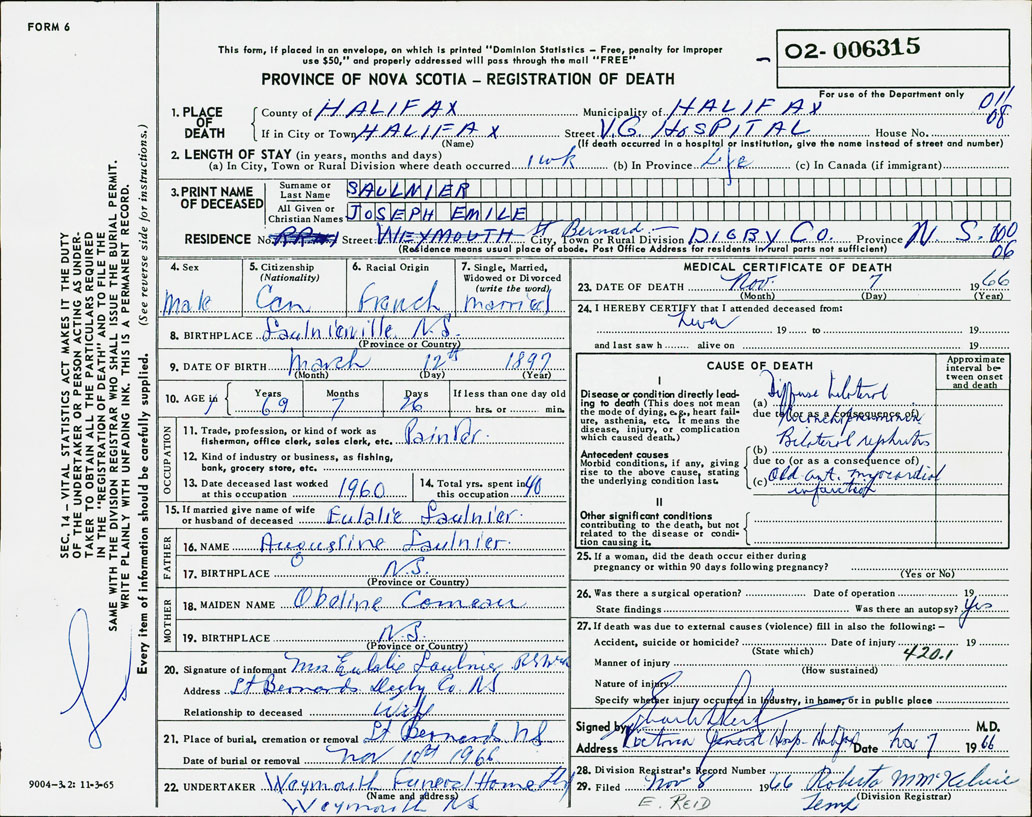 FORM 6
This form, if placed in an envelope, on which is printed "Dominion Statistics – Free, penalty for improper
use $50," and properly addressed will pass through the mail "FREE"
PROVINCE OF NOVA SCOTIA – REGISTRATION OF DEATH
02- 006315
For use of the Department only
011
08
1. PLACE OF DEATH
County of HALIFAX Municipality of HALIFAX
If in City or Town HALIFAX Street V.G. HOSPITAL House No.
(Name) (If death occurred in a hospital or institution, give the name instead of street and number)
2. LENGTH OF STAY (in years, months and days)
(a) In City, Town or Rural Division where death occurred 1 wk (b) In Province Life (c) In Canada (if immigrant)
3. PRINT NAME OF DECEASED
Surname or Last Name SAULNIER
All Given or Christian Names JOSEPH EMILE
RESIDENCE No. RR#1 Street WEYMOUTH St Bernard – City, Town or Rural Division DIGBY CO. Province N S. 000
06
(Residence means usual place of abode. Post Office Address for residents in rural parts not sufficient)
4. Sex Male
5. Citizenship (Nationality) Can
6. Racial Origin French
7. Single, Married, Widowed or Divorced (write the word) Married
8. BIRTHPLACE Saulnierville N.S.
(Province or Country)
9. DATE OF BIRTH March 12th 1897
(Month) (Day) (Year)
10. AGE in Years 69 Months 7 Days 26 If less than one day old
hrs. or min.
OCCUPATION
11. Trade, profession, or kind of work as
fisherman, office clerk, sales clerk, etc. Painter.
12. Kind of industry or business, as fishing,
bank, grocery store, etc.
13. Date deceased last worked
at this occupation 1960
14. Total yrs. spent in
this occupation 40
15. If married give name of wife
or husband of deceased Eulalie Saulnier.
FATHER
16. NAME Augustine Saulnier.
17. BIRTHPLACE N.S.
(Province or Country)
MOTHER
18. MAIDEN NAME Obeline Comeau
19. BIRTHPLACE N.S.
(Province or Country)
20. Signature of informant Mrs Eulalie Saulnier
Address St Bernards Digby Co. NS
Relationship to deceased Wife
21. Place of burial, cremation or removal St Bernards NS
Date of burial or removal Nov 10th 1966
22. UNDERTAKER Weymouth Funeral Home
(Name and address)
Weymouth NS
MEDICAL CERTIFICATE OF DEATH
23. DATE OF DEATH Nov. 7 1966
(Month) (Day) (Year)
24. I HEREBY CERTIFY that I attended deceased from:
never 19 to 19
and last saw h alive on 19
CAUSE OF DEATH
Approximate interval between onset and death
I
Disease or condition directly leading to death (This does not mean
the mode of dying, e.g., heart failure, asthenia, etc. It means the
disease, injury, or complication
which caused death.)
(a) Diffuse bilateral
due to (or as a consequence of)
Bronchopneumonia
(b) Bilateral nephritis
due to (or as a consequence of)
(c) Old ant. myocardial
infarction
Antecedent causes
Morbid conditions, if any, giving
rise to the above cause, stating
the underlying condition last.
II
Other significant conditions
contributing to the death, but not
related to the disease or condition causing it.
25. If a woman, did the death occur either during
pregnancy or within 90 days following pregnancy?
(Yes or No)
26. Was there a surgical operation? Date of operation 19
State findings Was there an autopsy? Yes
27. If death was due to external causes (violence) fill in also the following: –
Accident, suicide or homicide? Date of injury 19
(State which) 420.1
Manner of injury
(How sustained)
Nature of injury
Specify whether injury occurred in industry, in home, or in public place
Signed by M.D.
Address Victoria General Hosp – Halifax Date Nov 7 1966
28. Division Registrar's Record Number
29. Filed Nov 8 1966 Roberta M McKelvie
(Division Registrar)
E. REID Temp
SEC. 14 – VITAL STATISTICS ACT MAKES IT THE DUTY
OF THE UNDERTAKER OR PERSON ACTING AS UNDER-
TAKER TO OBTAIN ALL THE PARTICULARS REQUIRED
IN THE "REGISTRATION OF DEATH" AND TO FILE THE
SAME WITH THE DIVISION REGISTRAR WHO SHALL ISSUE THE BURIAL PERMIT.
WRITE PLAINLY WITH UNFADING INK. THIS IS A PERMANENT RECORD.
Every item of information should be carefully supplied. (See reverse side for instructions.)
9004-3.2: 11-3-65